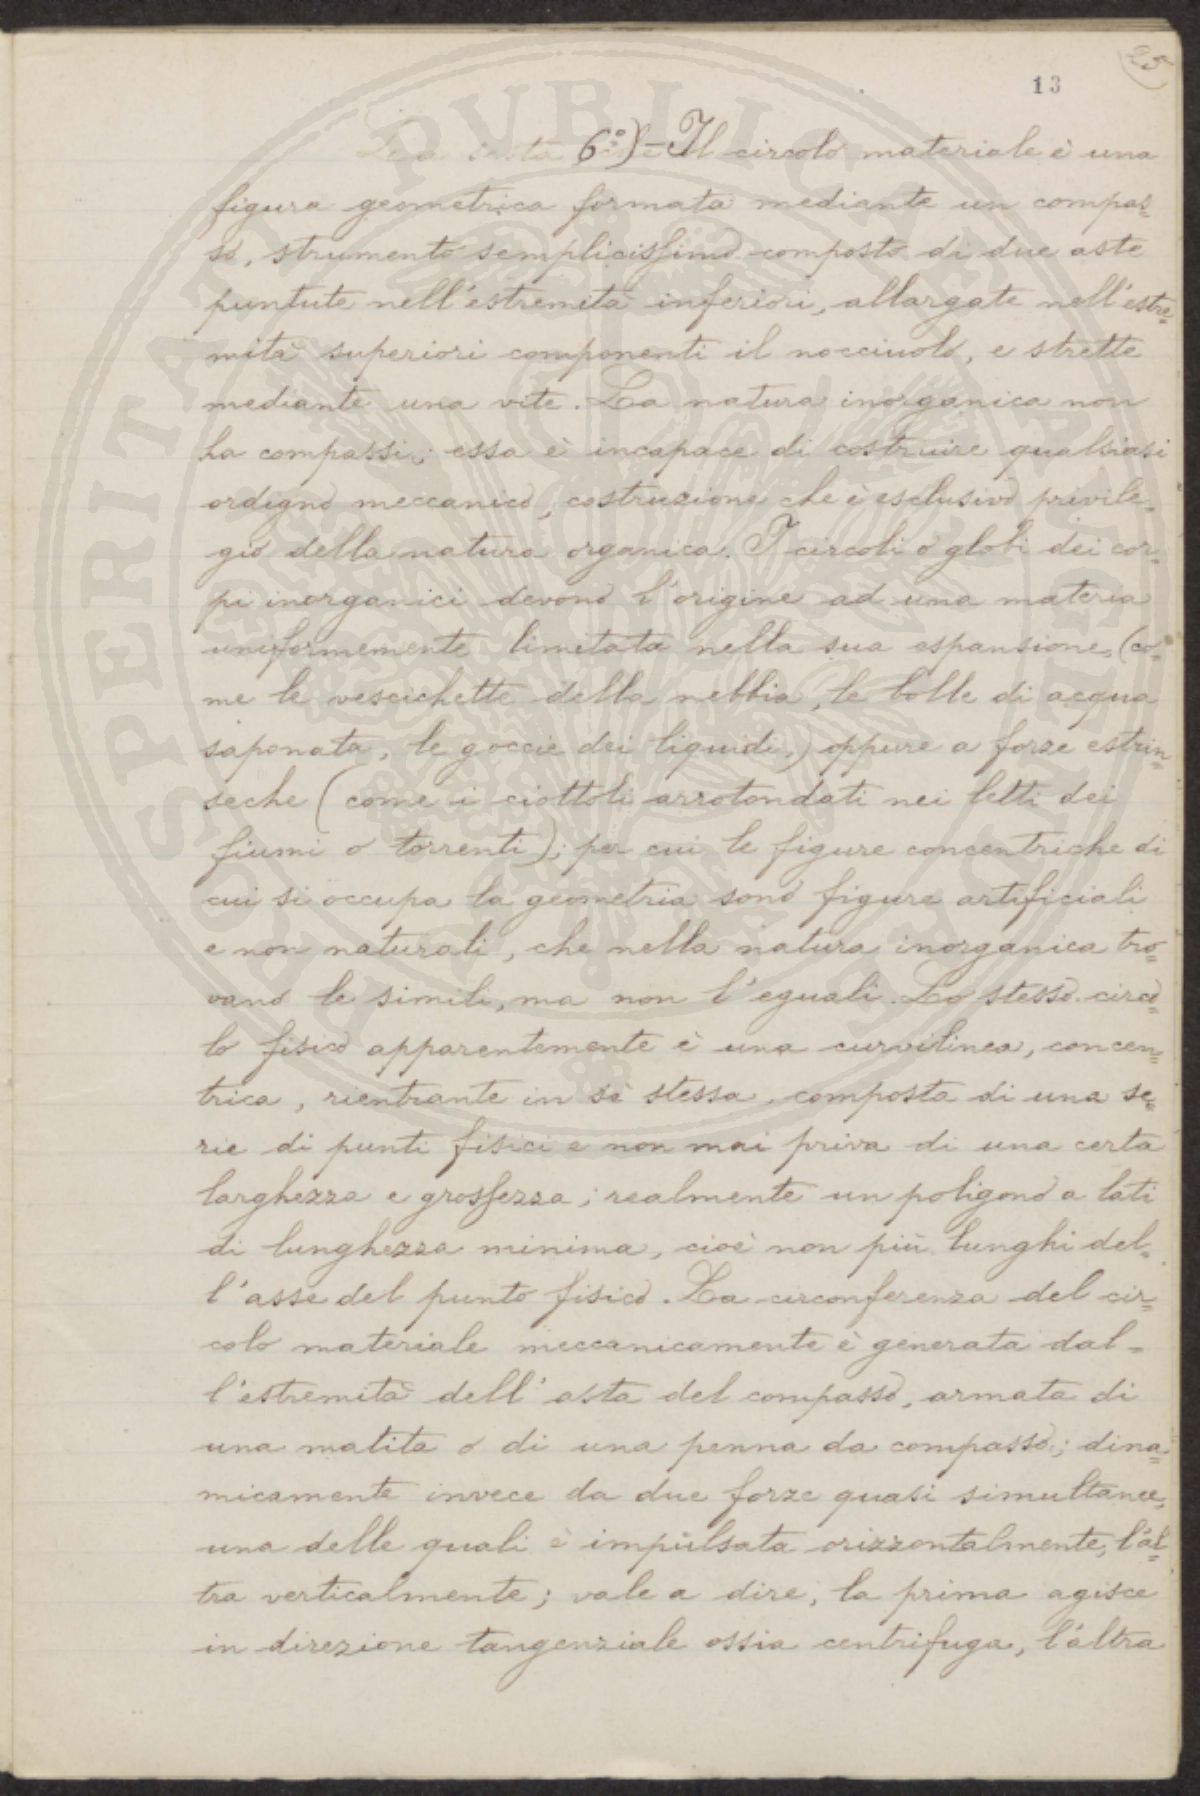 25
13
6°) - Il circolo materiale è una
figura geometrica formata mediante un compas=
so, strumento semplicissimo composto di due aste
puntute nell'estremità inferiori, allargate nell'estre=
mità superiori componenti il nocciuolo, e strette
mediante una vite. La natura inorganica non
ha compassi; essa è incapace di costruire qualsiasi
ordigno meccanico, costruzione che è esclusivo privile-
gio della natura organica. I circoli o globi dei cor-
pi inorganici devono l'origine ad una materia
uniformemente limitata nella sua espansione, (co=
me le vescichette della nebbia, le bolle di acqua
saponata, le goccie dei liquidi,) oppure a forze estrin=
seche (come i ciottoli arrotondati nei letti dei
fiumi o torrenti); per cui le figure concentriche di
cui si occupa la geometria sono figure artificiali
e non naturali, che nella natura inorganica tro=
vano le simili, ma non l'eguali. Lo stesso circo=
lo fisico apparentemente è una curvilinea, concen=
trica, rientrante in sè stessa, composta di una se=
rie di punti fisici e non mai priva di una certa
larghezza e grossezza; realmente un poligono a lati
di lunghezza minima, cioè non più lunghi del=
l'asse del punto fisico. La circonferenza del cir=
colo materiale meccanicamente è generata dal=
l'estremità dell'asta del compasso, armata di
una matita o di una penna da compasso; dina=
micamente invece da due forze quasi simultanee,
una delle quali è impulsata orizzontalmente, l'al=
tra verticalmente; vale a dire, la prima agisce
in direzione tangenziale ossia centrifuga, l'altra
PROSPERITATI PVBLICAE AVGENDAE